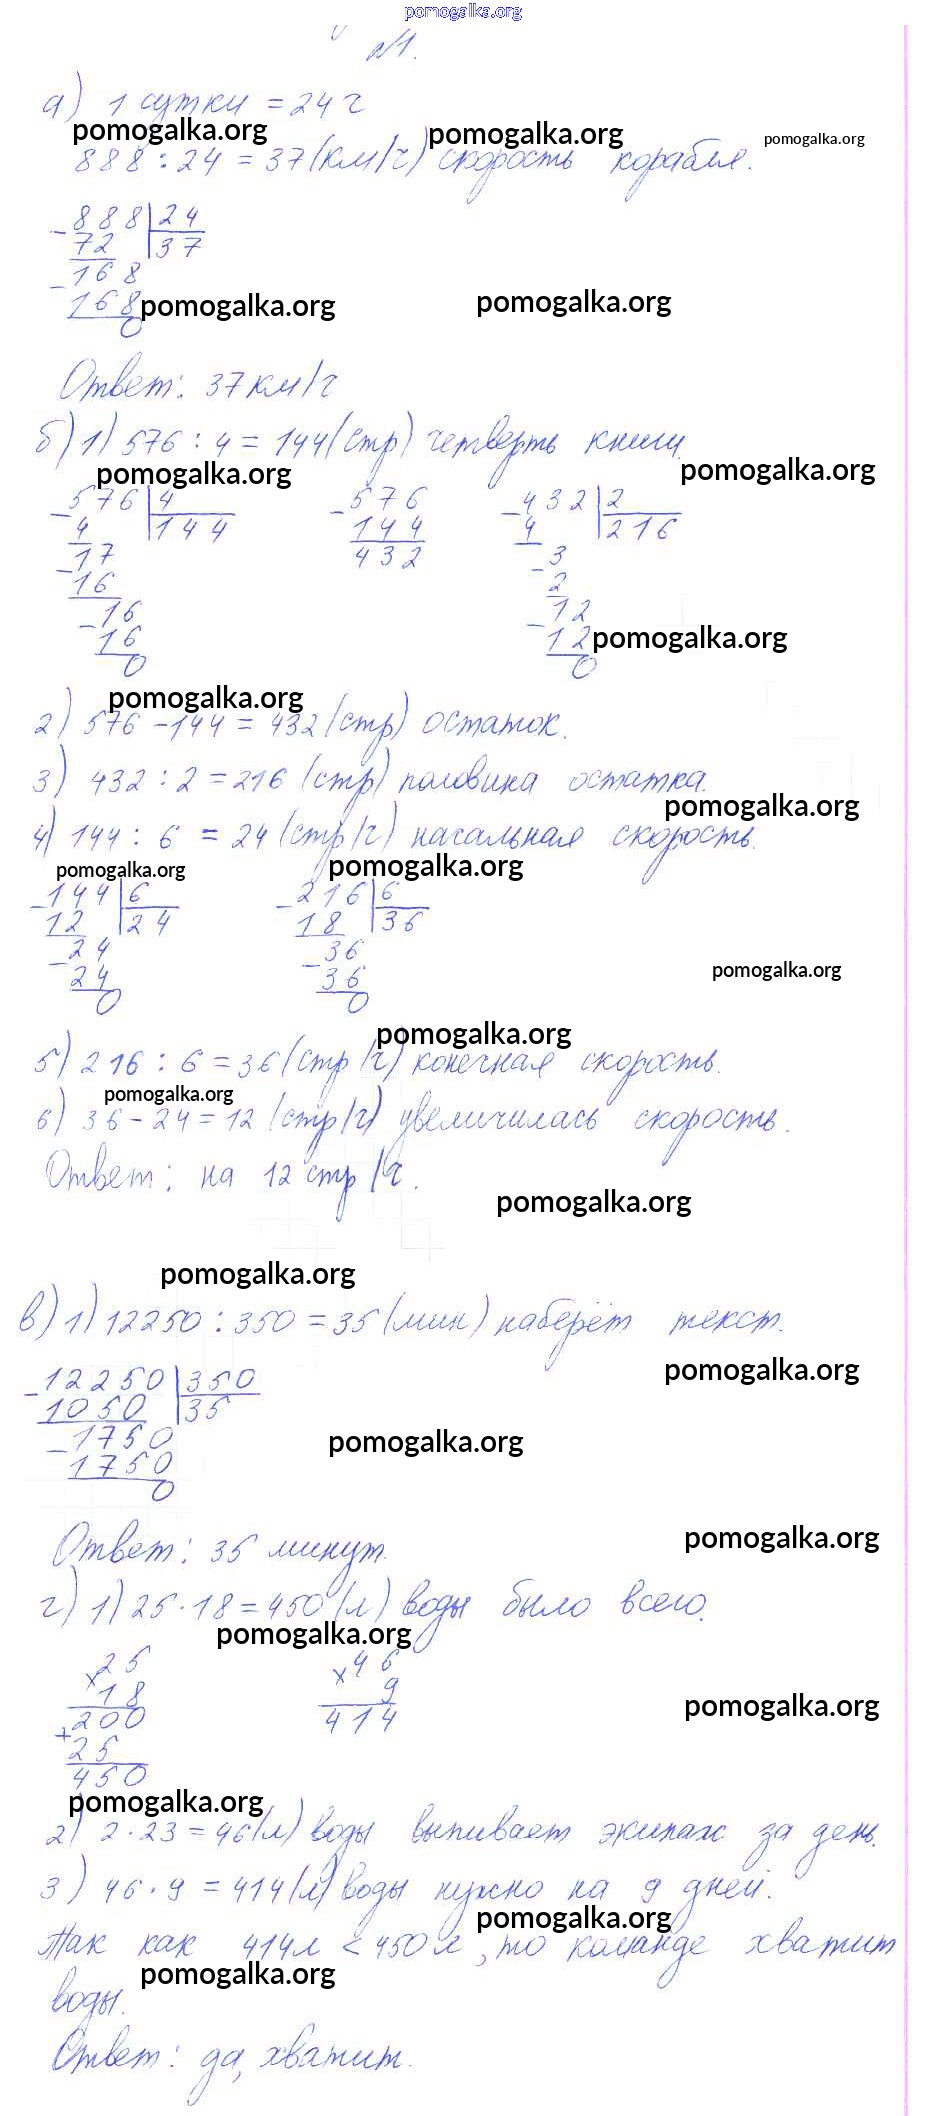 pomogalka.org
№1.
а) 1 сутки = 24 ч
pomogalka.org pomogalka.org pomogalka.org
888 : 24 = 37 (км/ч) скорость корабля.
- 888 | 24
72 | 37
- 168
168 pomogalka.org pomogalka.org
0
Ответ: 37 км/ч
б) 1) 576 : 4 = 144 (стр) четверть книги.
pomogalka.org pomogalka.org
- 576 | 4 - 576 - 432 | 2
4 | 144 144 4 | 216
- 17 432 - 3
16 2
- 16 - 12
16 12 pomogalka.org
0 0
pomogalka.org
2) 576 - 144 = 432 (стр) остаток.
3) 432 : 2 = 216 (стр) половина остатка.
pomogalka.org
4) 144 : 6 = 24 (стр/ч) начальная скорость.
pomogalka.org pomogalka.org
- 144 | 6 - 216 | 6
12 | 24 18 | 36
- 24 - 36
24 36 pomogalka.org
0 0
pomogalka.org
5) 216 : 6 = 36 (стр/ч) конечная скорость.
pomogalka.org
6) 36 - 24 = 12 (стр/ч) увеличилась скорость.
Ответ: на 12 стр/ч.
pomogalka.org
pomogalka.org
в) 1) 12250 : 350 = 35 (мин) наберёт текст.
pomogalka.org
- 12250 | 350
1050 | 35
- 1750 pomogalka.org
1750
0
Ответ: 35 минут.
pomogalka.org
г) 1) 25 · 18 = 450 (л) воды было всего.
pomogalka.org
× 25 × 46
18 9
+ 200 414 pomogalka.org
25
450
pomogalka.org
2) 2 · 23 = 46 (л) воды выпивает экипаж за день.
3) 46 · 9 = 414 (л) воды нужно на 9 дней.
pomogalka.org
Так как 414л < 450л, то команде хватит
pomogalka.org
воды.
Ответ: да, хватит.